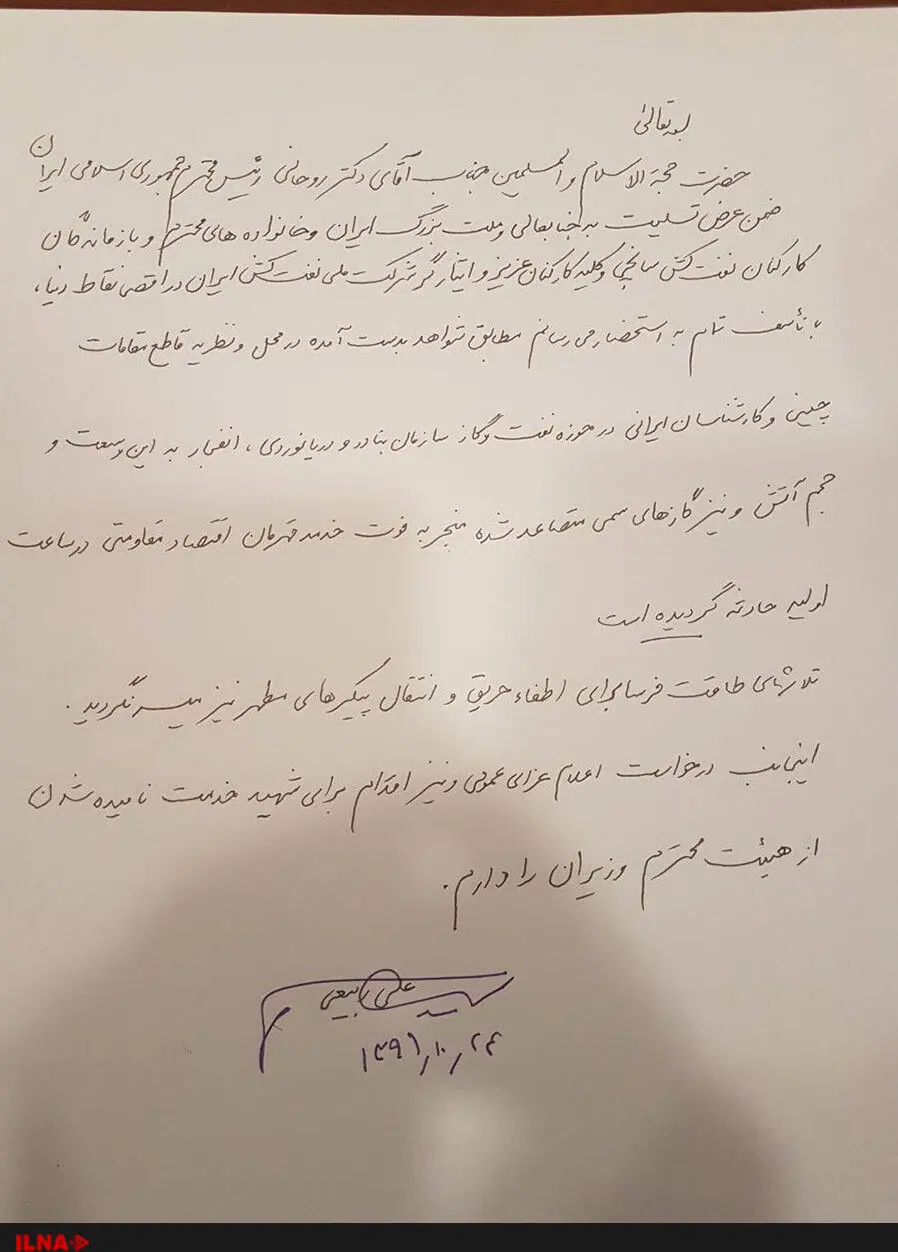 بسمه تعالی
حضرت حجة الاسلام و المسلمین جناب آقای دکتر روحانی رئیس محترم جمهوری اسلامی ایران
ضمن عرض تسلیت به جنابعالی و ملت بزرگ ایران و خانواده های محترم و بازماندگان
کارکنان نفت کش سانچی و کلیه کارکنان عزیز و ایثارگر شرکت ملی نفت کش ایران در اقصی نقاط دنیا،
با تأسف تمام به استحضار می رسانم مطابق شواهد بدست آمده در محل و نظریه قاطع مقامات
چینی و کارشناسان ایرانی در حوزه نفت و گاز سازمان بنادر و دریانوردی، انفجار به این وسعت و
حجم آتش و نیز گازهای سمی متصاعد شده منجر به فوت خدمه قهرمان اقتصاد مقاومتی در ساعت
اولیه حادثه گردیده است
تلاشهای طاقت فرسا برای اطفاء حریق و انتقال پیکرهای مطهر نیز میسر نگردید.
اینجانب درخواست اعلام عزای عمومی و نیز اقدام برای شهید خدمت نامیده شدن
از هیئت محترم وزیران را دارم.
علی ربیعی
۱۳۹۶٫۱۰٫۲۴
ILNA